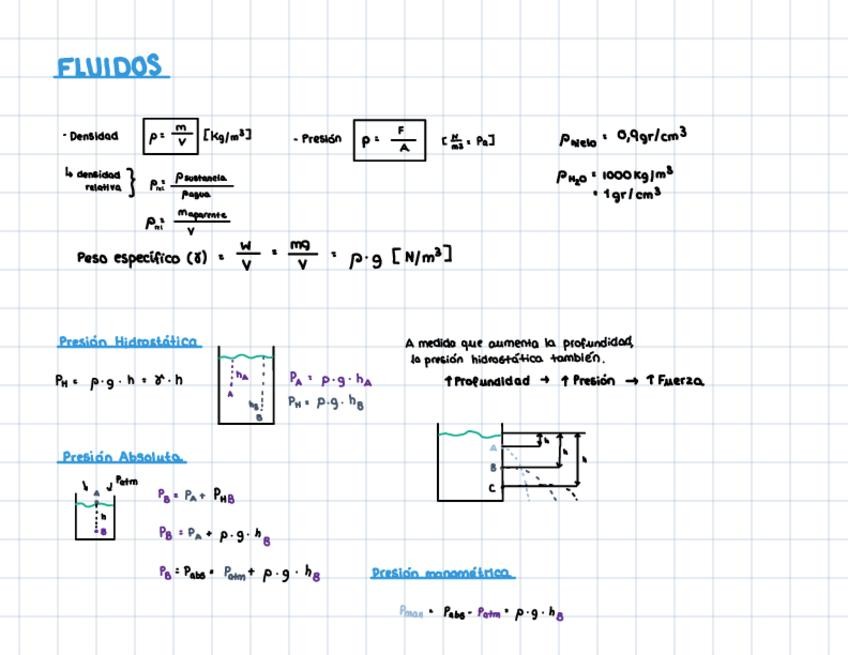 FLUIDOS
- Densidad ρ = m/V [Kg/m³]
- Presión P = F/A [N/m² = Pa]
ρHielo = 0,9gr/cm³
ρH₂O = 1000 Kg/m³
= 1gr/cm³
↳ densidad relativa } ρrel = ρsustancia/ρagua
ρrel = maparente/V
Peso específico (γ) = W/V = mg/V = ρ·g [N/m³]
Presión Hidrostática
PH = ρ·g·h = γ·h
hA
A
hB
B
PA = ρ·g·hA
PH = ρ·g·hB
A medida que aumenta la profundidad,
la presión hidrostática también.
↑Profundidad → ↑Presión → ↑Fuerza
A
B
C
h
h
h
Presión Absoluta
Patm
A
h
B
PB = PA + PHB
PB = PA + ρ·g·hB
PB = Pabs = Patm + ρ·g·hB
Presión manométrica
Pman = Pabs - Patm = ρ·g·hB